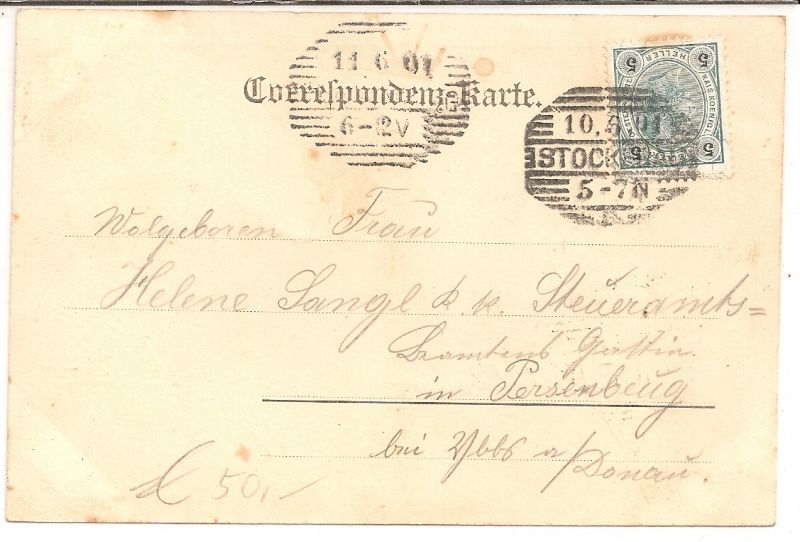 11 6 01
Correspondenz-Karte.
6-12V
10.6 01
STOCK
5-7N
5 HELLER 5
5 5
Wolgeboren Frau
Helene Sangl k. k. Steueramts=
Beamtens Gattin
in Persenbeug
bei Ybbs a/Donau
€ 50,-